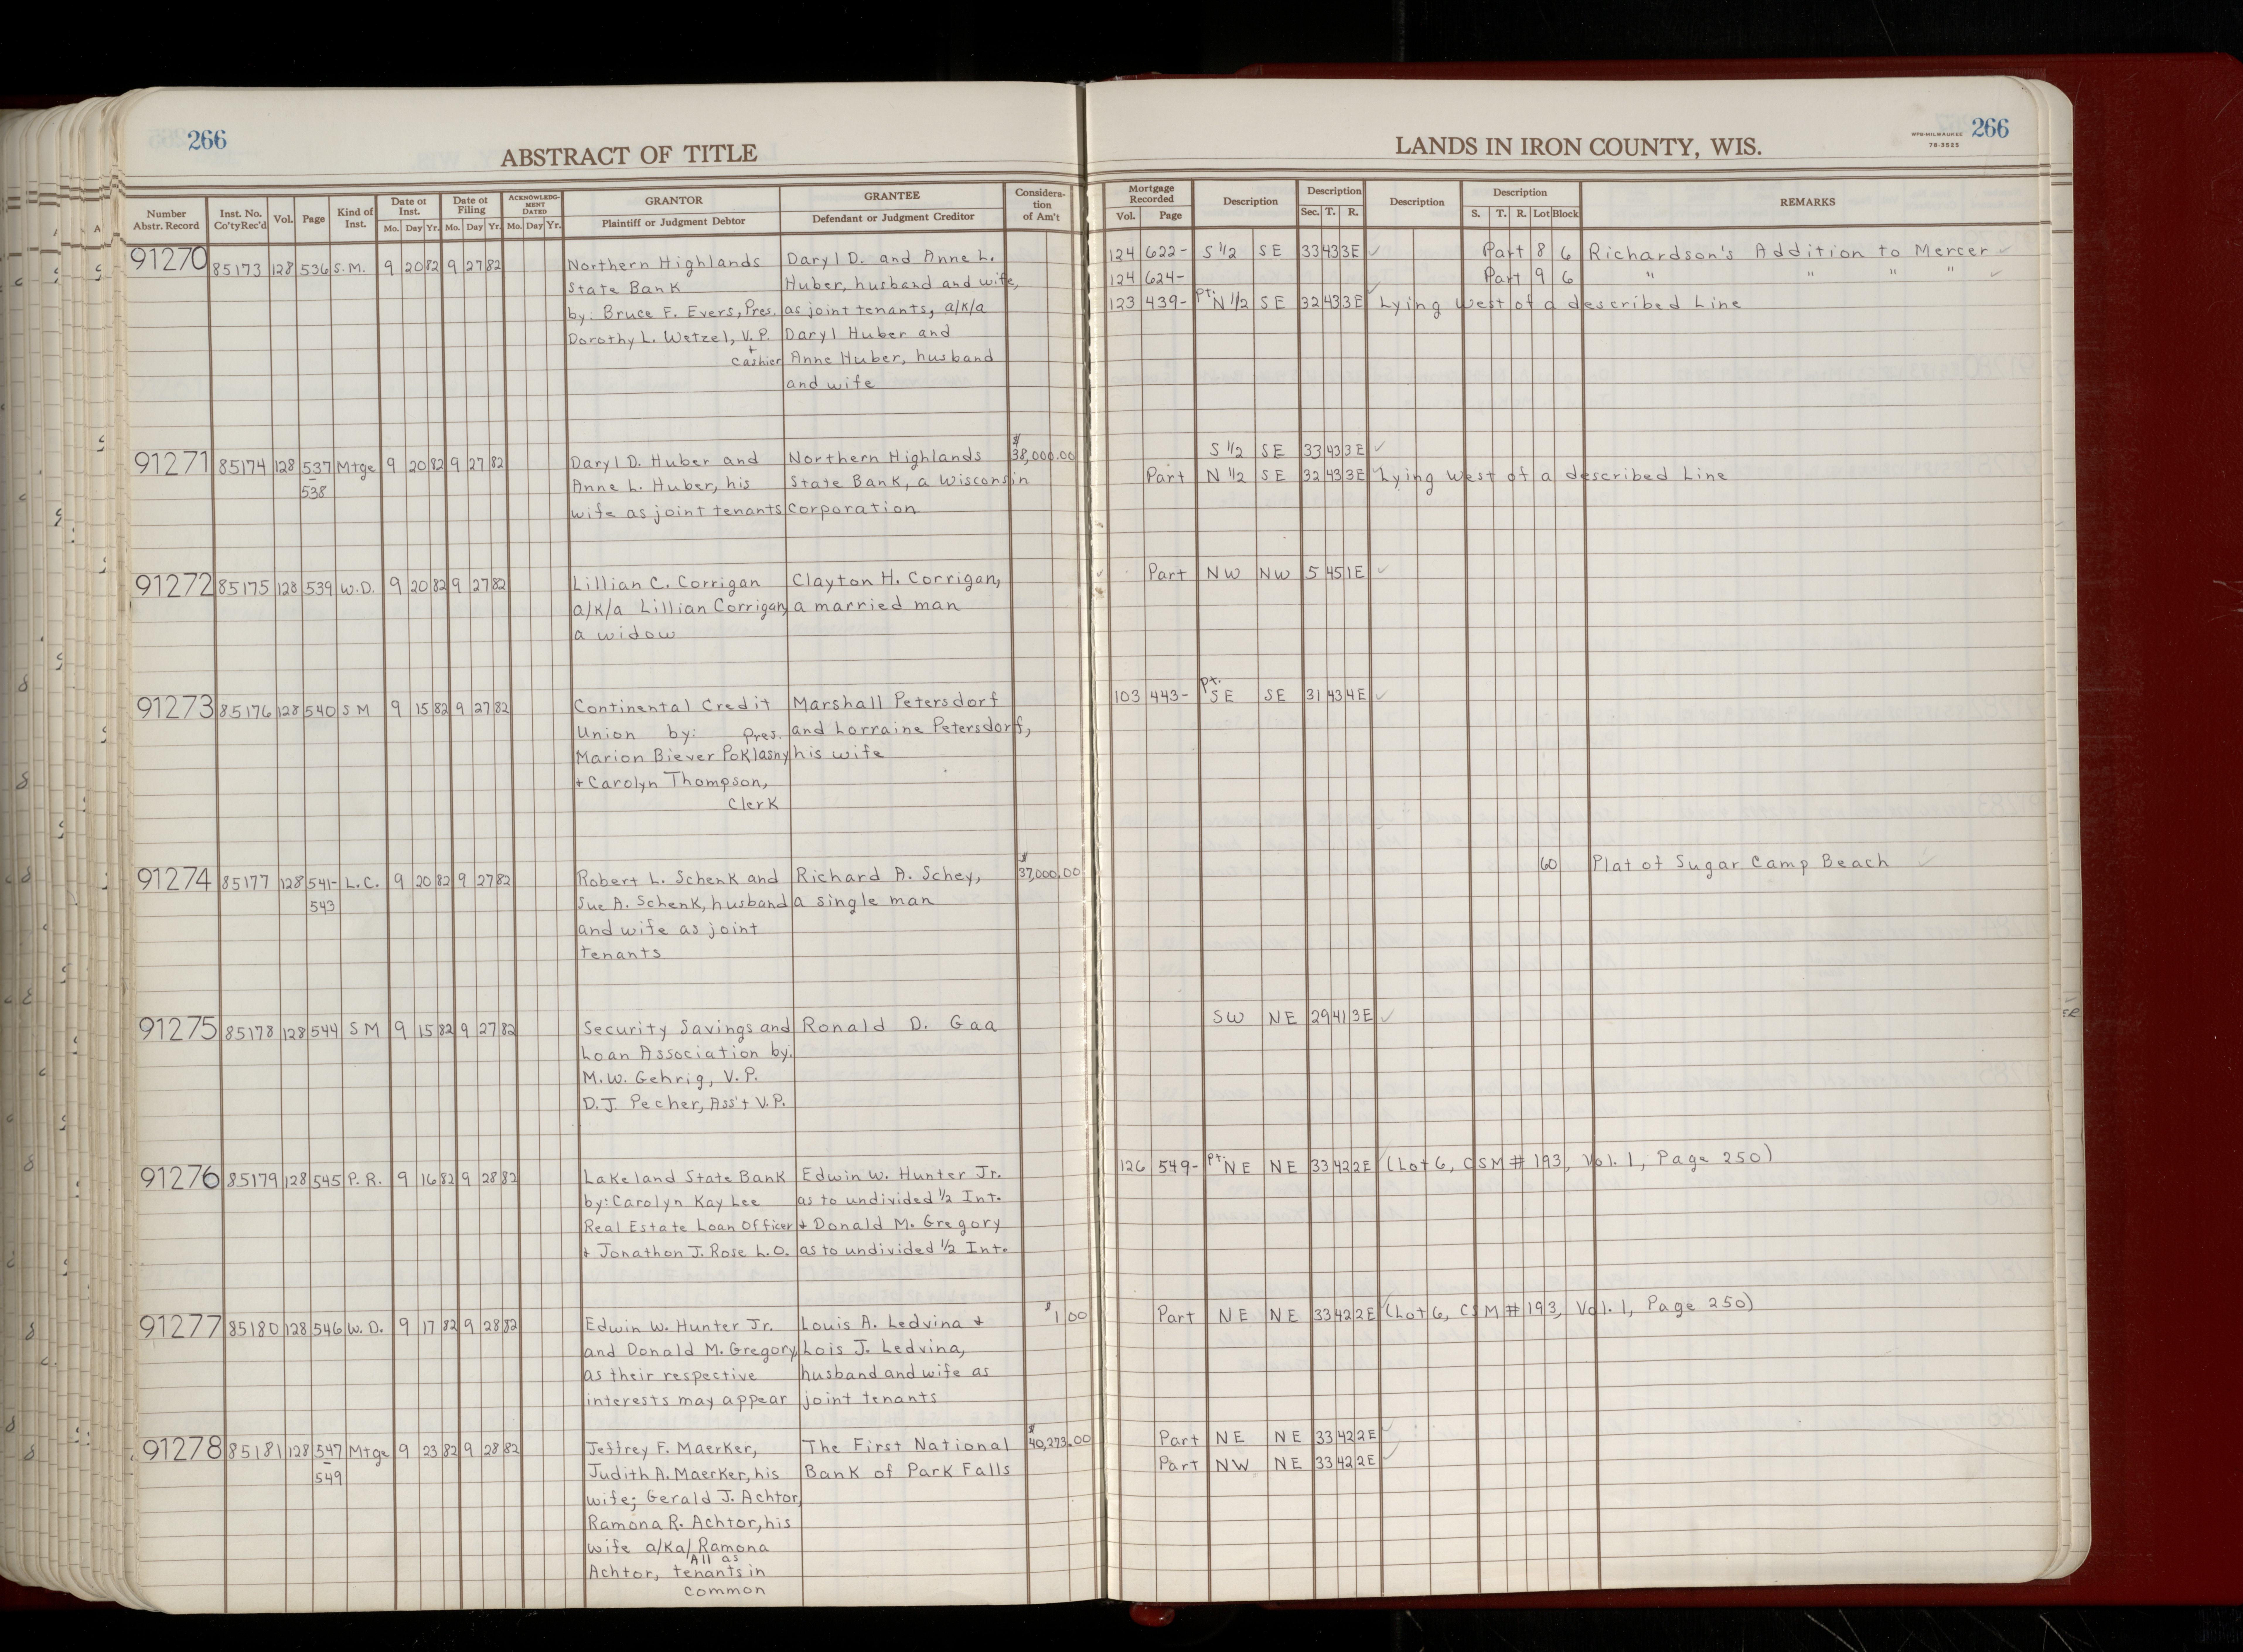 266
ABSTRACT OF TITLE
LANDS IN IRON COUNTY, WIS.
WPB-MILWAUKEE
78-3525
266
Number Abstr. Record | Inst. No. Co'ty Rec'd | Vol. | Page | Kind of Inst. | Date of Inst. Mo. Day Yr. | Date of Filing Mo. Day Yr. | ACKNOWLEDGMENT DATED Mo. Day Yr. | GRANTOR Plaintiff or Judgment Debtor | GRANTEE Defendant or Judgment Creditor | Consideration of Am't | Mortgage Recorded Vol. Page | Description | Description Sec. T. R. | Description | Description S. T. R. Lot Block | REMARKS
91270 85173 128 536 S.M. 9 20 82 9 27 82 Northern Highlands | Daryl D. and Anne L. | 124 622- S 1/2 SE 33 43 3E ✓ Part 8 6 Richardson's Addition to Mercer ✓
State Bank | Huber, husband and wife, | 124 624- Part 9 6 " " " " ✓
by: Bruce F. Evers, Pres. | as joint tenants, a/k/a | 123 439- Pt. N 1/2 SE 32 43 3E ✓ Lying West of a described Line
Dorothy L. Wetzel, V.P. | Daryl Huber and
+ Cashier | Anne Huber, husband
and wife
91271 85174 128 537 Mtge 9 20 82 9 27 82 Daryl D. Huber and | Northern Highlands | $38,000.00 | S 1/2 SE 33 43 3E ✓
– 538 Anne L. Huber, his | State Bank, a Wisconsin | Part N 1/2 SE 32 43 3E ✓ Lying West of a described Line
wife as joint tenants | Corporation
91272 85175 128 539 W.D. 9 20 82 9 27 82 Lillian C. Corrigan | Clayton H. Corrigan, | ✓ Part NW NW 5 45 1E ✓
a/k/a Lillian Corrigan, | a married man
a widow
91273 85176 128 540 S M 9 15 82 9 27 82 Continental Credit | Marshall Petersdorf | 103 443- Pt. SE SE 31 43 4E ✓
Union by: Pres. | and Lorraine Petersdorf,
Marion Biever Poklasny | his wife
+ Carolyn Thompson,
Clerk
91274 85177 128 541- L.C. 9 20 82 9 27 82 Robert L. Schenk and | Richard A. Schey, | $37,000.00 | 60 Plat of Sugar Camp Beach ✓
543 Sue A. Schenk, husband | a single man
and wife as joint
tenants
91275 85178 128 544 S M 9 15 82 9 27 82 Security Savings and | Ronald D. Gaa | SW NE 29 41 3E ✓
Loan Association by:
M.W. Gehrig, V.P.
D.J. Pecher, Ass't V.P.
91276 85179 128 545 P.R. 9 16 82 9 28 82 Lakeland State Bank | Edwin W. Hunter Jr. | 126 549- Pt. NE NE 33 42 2E ✓ (Lot 6, CSM # 193, Vol. 1, Page 250)
by: Carolyn Kay Lee | as to undivided 1/2 Int.
Real Estate Loan Officer | + Donald M. Gregory
+ Jonathon J. Rose L.O. | as to undivided 1/2 Int.
91277 85180 128 546 W.D. 9 17 82 9 28 82 Edwin W. Hunter Jr. | Louis A. Ledvina + | $1.00 | Part NE NE 33 42 2E ✓ (Lot 6, CSM # 193, Vol. 1, Page 250)
and Donald M. Gregory, | Lois J. Ledvina,
as their respective | husband and wife as
interests may appear | joint tenants
91278 85181 128 547 Mtge 9 23 82 9 28 82 Jeffrey F. Maerker, | The First National | $40,273.00 | Part NE NE 33 42 2E ✓
– 549 Judith A. Maerker, his | Bank of Park Falls | Part NW NE 33 42 2E ✓
wife; Gerald J. Achtor,
Ramona R. Achtor, his
wife a/ka/ Ramona
All as
Achtor, tenants in
common